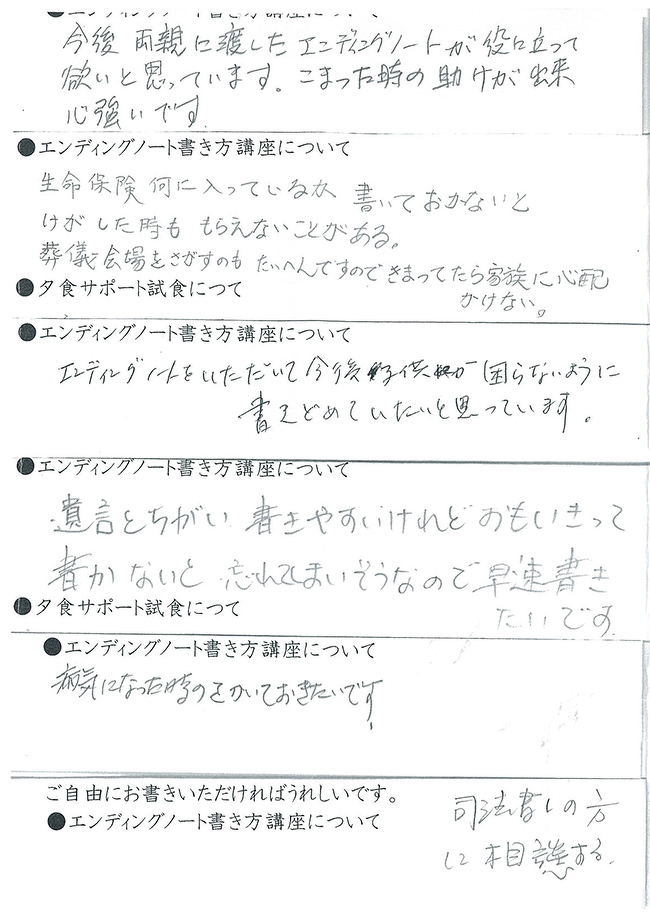 ●エンディングノート書き方講座について
今後両親に渡したエンディングノートが役に立って
欲いと思っています。こまった時の助けが出来
心強いです.
●エンディングノート書き方講座について
生命保険何に入っているか 書いておかないと
けがした時も もらえないことがある。
葬儀会場をさがすのも たいへんですので きまってたら家族に心配
かけない。
●夕食サポート試食につて
●エンディングノート書き方講座について
エンディングノートをいただいて今後子供が困らないように
書きとどめていたいと思っています。
●エンディングノート書き方講座について
遺言とちがい 書きやすいけれど おもいきって
書かないと 忘れてしまいそうなので早速書き
たいです.
●夕食サポート試食につて
●エンディングノート書き方講座について
病気になった時のをかいておきたいです
ご自由にお書きいただければうれしいです。
●エンディングノート書き方講座について
司法書しの方
に相談する.